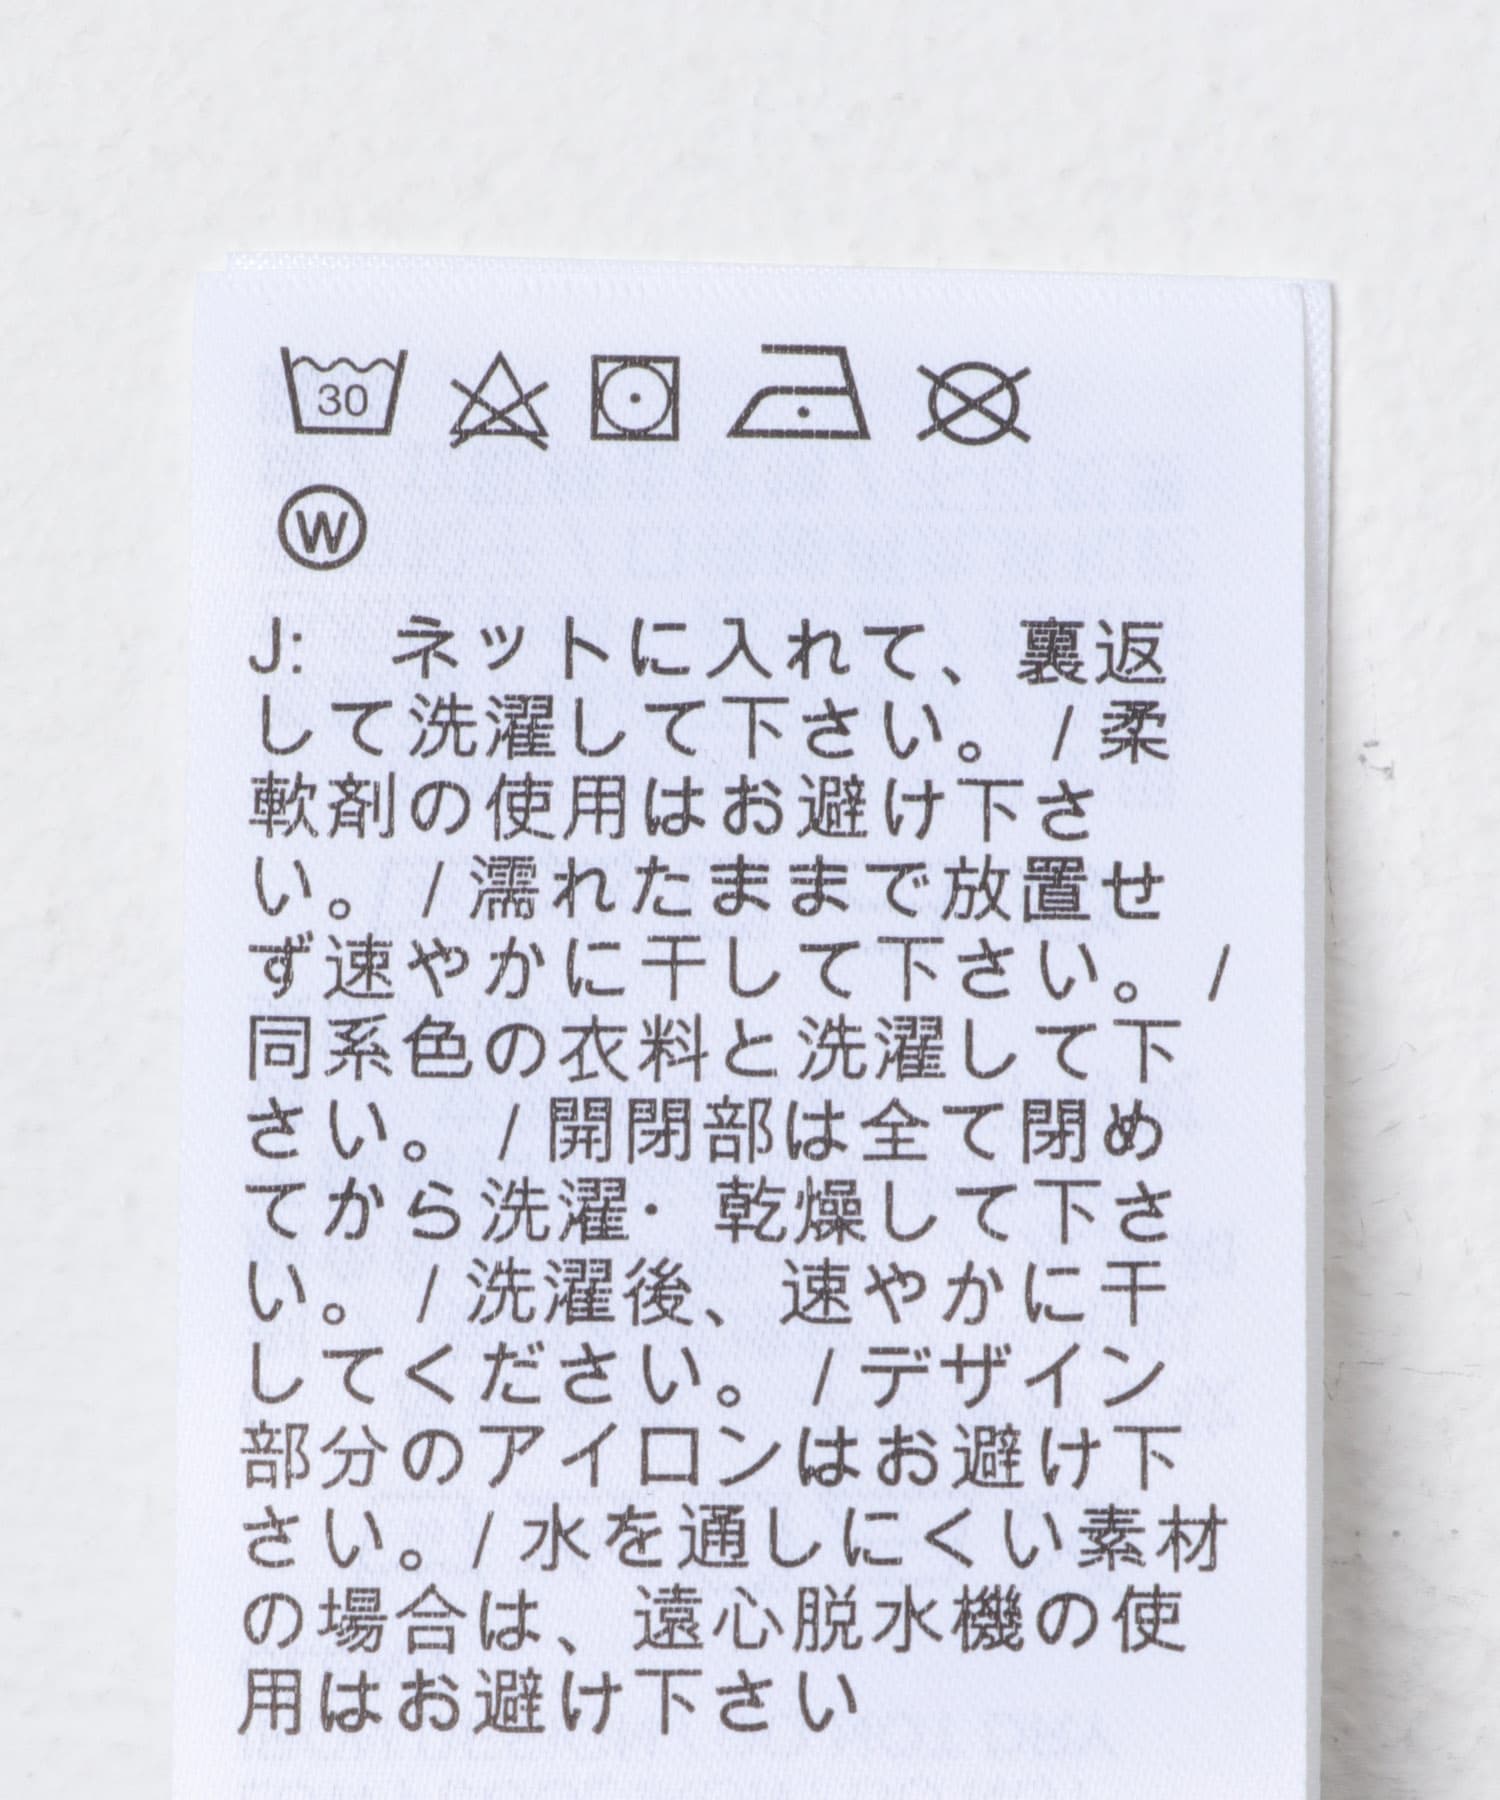 30
W
J: ネットに入れて、裏返
して洗濯して下さい。/柔
軟剤の使用はお避け下さ
い。/濡れたままで放置せ
ず速やかに干して下さい。/
同系色の衣料と洗濯して下
さい。/開閉部は全て閉め
てから洗濯・乾燥して下さ
い。/洗濯後、速やかに干
してください。/デザイン
部分のアイロンはお避け下
さい。/水を通しにくい素材
の場合は、遠心脱水機の使
用はお避け下さい